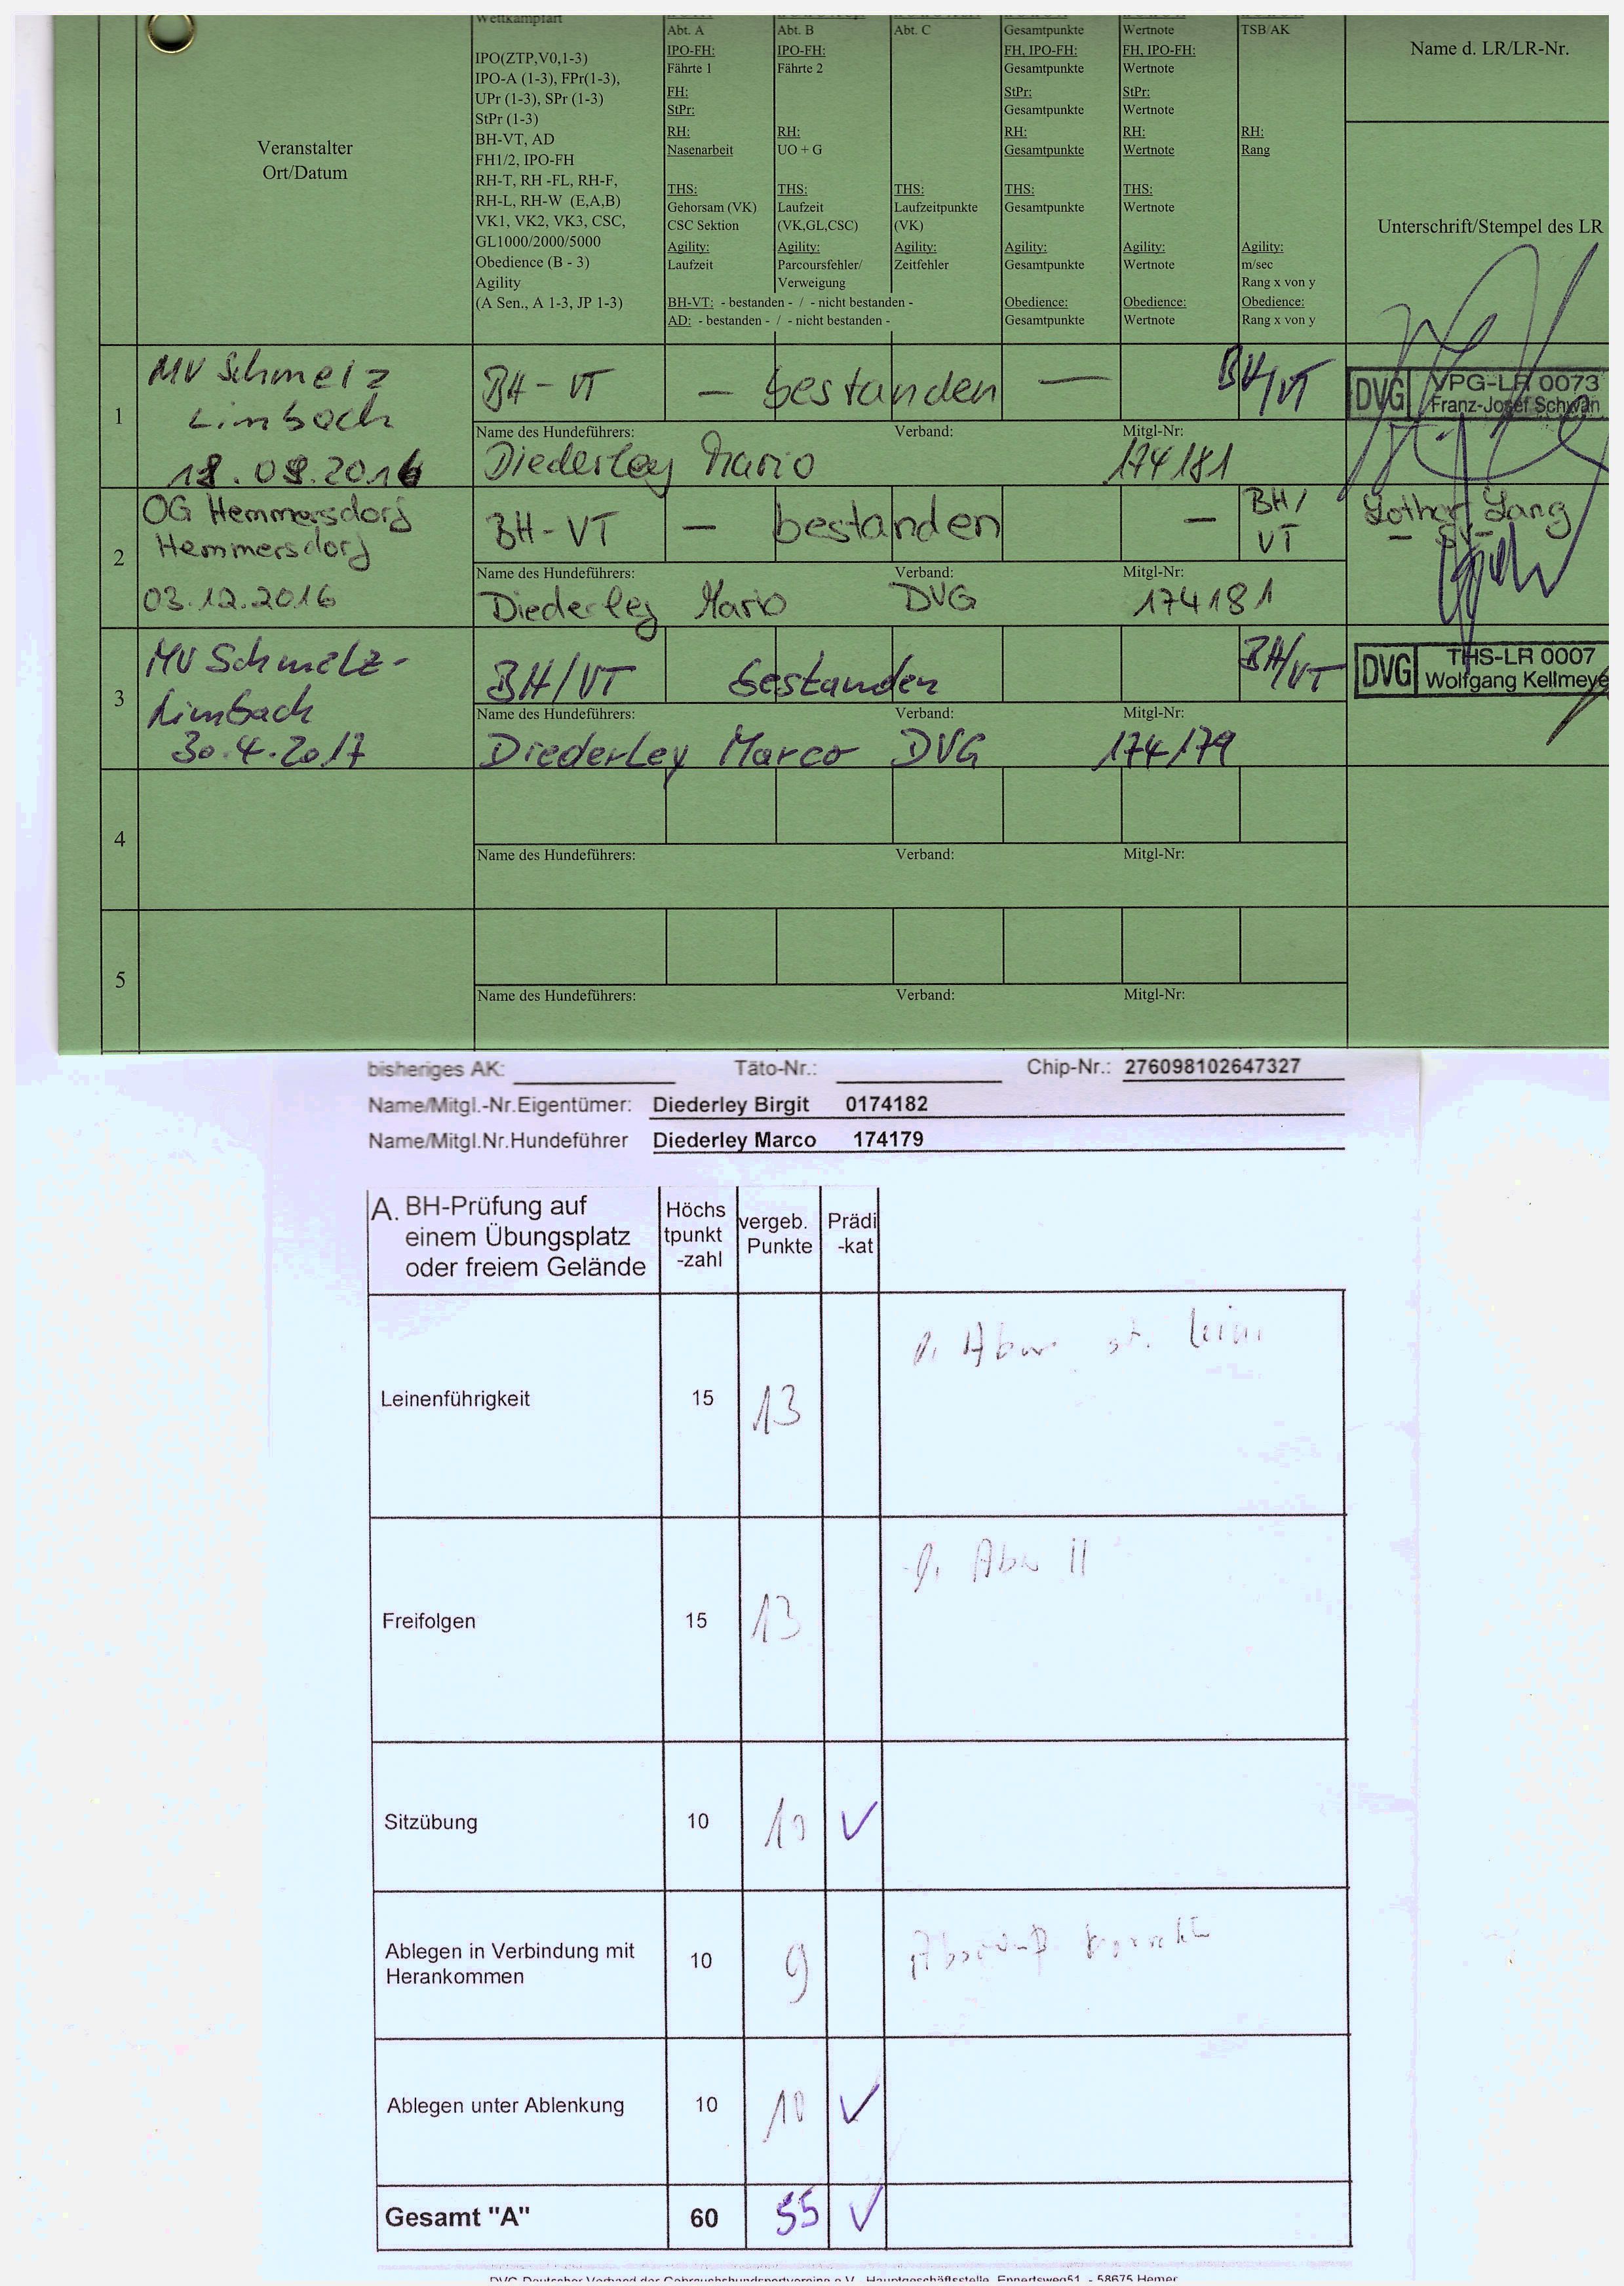 Wettkampfart
Veranstalter
Ort/Datum
IPO(ZTP,V0,1-3)
IPO-A (1-3), FPr(1-3),
UPr (1-3), SPr (1-3)
StPr (1-3)
BH-VT, AD
FH1/2, IPO-FH
RH-T, RH -FL, RH-F,
RH-L, RH-W (E,A,B)
VK1, VK2, VK3, CSC,
GL1000/2000/5000
Obedience (B - 3)
Agility
(A Sen., A 1-3, JP 1-3)
Abt. A
IPO-FH:
Fährte 1
FH:
StPr:
RH:
Nasenarbeit
THS:
Gehorsam (VK)
CSC Sektion
Agility:
Laufzeit
Abt. B
IPO-FH:
Fährte 2
RH:
UO + G
THS:
Laufzeit
(VK,GL,CSC)
Agility:
Parcoursfehler/
Verweigung
Abt. C
THS:
Laufzeitpunkte
(VK)
Agility:
Zeitfehler
BH-VT: - bestanden - / - nicht bestanden -
AD: - bestanden - / - nicht bestanden -
Gesamtpunkte
FH, IPO-FH:
Gesamtpunkte
StPr:
Gesamtpunkte
RH:
Gesamtpunkte
THS:
Gesamtpunkte
Agility:
Gesamtpunkte
Obedience:
Gesamtpunkte
Wertnote
FH, IPO-FH:
Wertnote
StPr:
Wertnote
RH:
Wertnote
THS:
Wertnote
Agility:
Wertnote
Obedience:
Wertnote
TSB/AK
RH:
Rang
Agility:
m/sec
Rang x von y
Obedience:
Rang x von y
Name d. LR/LR-Nr.
Unterschrift/Stempel des LR
1
MV Schmelz
Limbach
18.09.2016
BH-VT - bestanden - BH/VT
Name des Hundeführers: Verband: Mitgl-Nr:
Diederley Mario 174181
DVG VPG-LR 0073
Franz-Josef Schwan
2
OG Hemmersdorf
Hemmersdorf
03.12.2016
BH-VT - bestanden - BH/
VT
Name des Hundeführers: Verband: Mitgl-Nr:
Diederley Mario DVG 174181
Lothar Lang
- SV -
3
MV Schmelz-
Limbach
30.4.2017
BH/VT bestanden BH/VT
Name des Hundeführers: Verband: Mitgl-Nr:
Diederley Marco DVG 174179
DVG THS-LR 0007
Wolfgang Kellmeye
4
Name des Hundeführers: Verband: Mitgl-Nr:
5
Name des Hundeführers: Verband: Mitgl-Nr:
bisheriges AK: Täto-Nr.: Chip-Nr.: 276098102647327
Name/Mitgl.-Nr.Eigentümer: Diederley Birgit 0174182
Name/Mitgl.Nr.Hundeführer Diederley Marco 174179
A. BH-Prüfung auf
einem Übungsplatz
oder freiem Gelände
Höchs
tpunkt
-zahl
vergeb.
Punkte
Prädi
-kat
Leinenführigkeit 15 13
Freifolgen 15 13
Sitzübung 10 10 ✓
Ablegen in Verbindung mit
Herankommen 10 9
Ablegen unter Ablenkung 10 10 ✓
Gesamt "A" 60 55 ✓
DVG Deutscher Verband der Gebrauchshundsportvereine e.V., Hauptgeschäftsstelle, Ennertsweg51, - 58675 Hemer